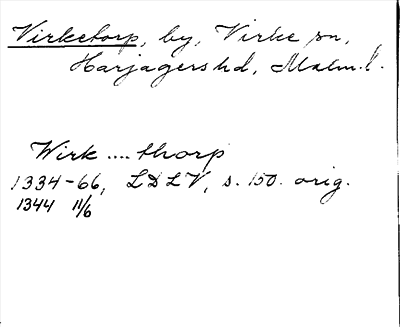 Virketorp, by, Virke sn,
Harjagers hd, Malm. l.
Wirk .... thorp
1334-66, LDLV, s. 150. orig.
1344 11/6